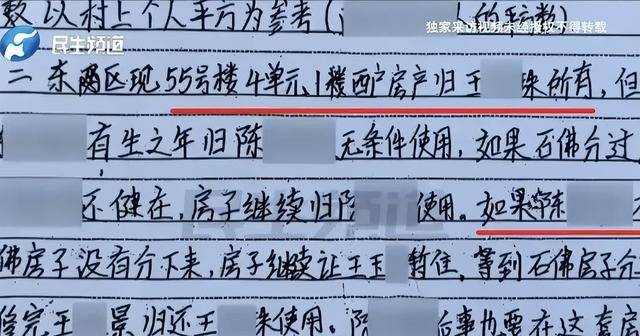 数以村上个人平方为参考(
民生频道
独家采访视频未经授权不得转载
二 东两区现55号楼4单元1楼西户房产归王 珠所有,但
有生之年归陈 无条件使用,如果石佛分过
不健在,房子继续归陈 使用。如果 陈
民生频道
佛房子没有分下来,房子继续让王玉 暂住,等到石佛房子分
王 景归还王 珠使用。陈 后事办要在这套房